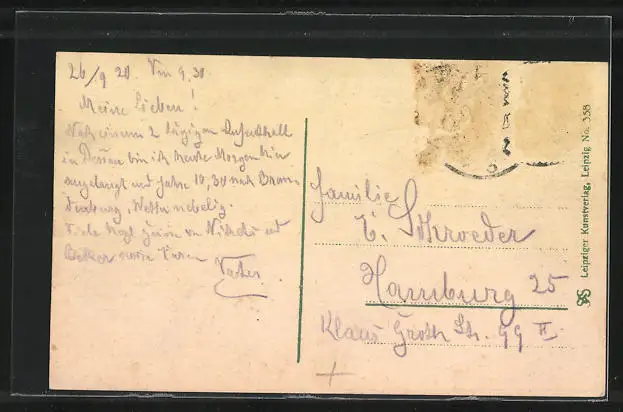 26/9 20. Vm 9.30.
Meine Lieben!
Nach einem 2 tägigen Aufenthalt
in Dessau bin ich heute Morgen hier
angelangt und fahre 10,30 nach Bran-
denburg. Wetter nebelig.
Viele herzl Grüsse von und
Vater
Familie
C. Schroeder
Hamburg 25
Klaus Groth Str. 99 II.
Leipziger Kunstverlag, Leipzig No. 358